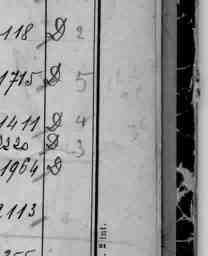 118 D 2
1715 D 5
1411 D 4
2220 D 3
1964 D
2113
2 int.